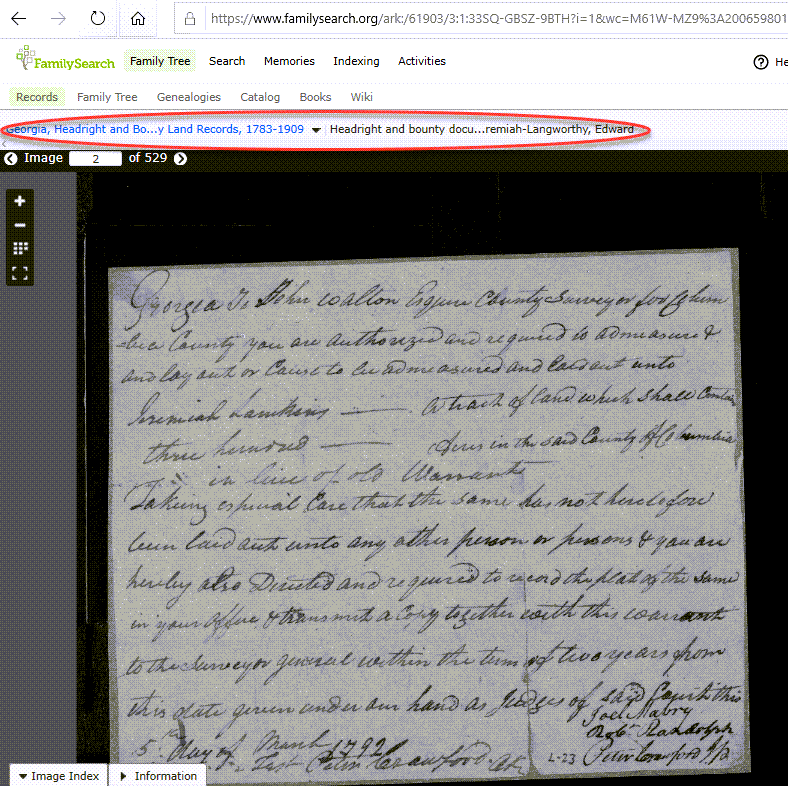 https://www.familysearch.org/ark:/61903/3:1:33SQ-GBSZ-9BTH?i=1&wc=M61W-MZ9%3A200659801
FamilySearch Family Tree Search Memories Indexing Activities He
Records Family Tree Genealogies Catalog Books Wiki
Georgia, Headright and Bo...y Land Records, 1783-1909 Headright and bounty docu...remiah-Langworthy, Edward
Image 2 of 529
Georgia To John Walton Esquire County Surveyor for Colum
-bia County you are authorized and required to admeasure &
and lay out or Cause to be admeasured and laid out unto
Jeremiah Lamkins A track of land which shall Contain
three hundred Acres in the said County of Columbia
in liew of old Warrants
Taking especial Care that the same has not heretofore
been laid out unto any other person or persons & you are
hereby also Directed and required to record the plat of the same
in your office & transmit a Copy together with this warrant
to the Surveyor general within the term of two years from
this date given under our hand as Judges of said Court this
5th day of March 1792
Joel Mabry
Robt Randolph
Test Peter Crawford
L-23 Peter Crawford
Image Index Information